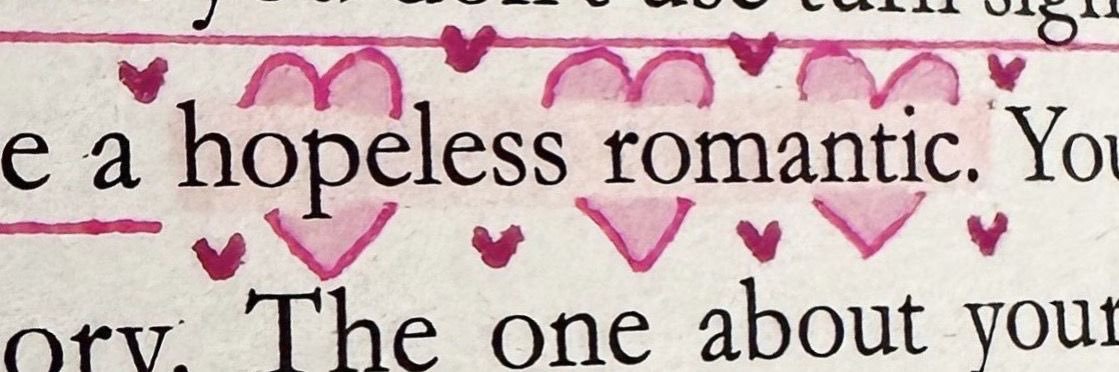 you don't use turn sign
e a hopeless romantic. You
ory. The one about your